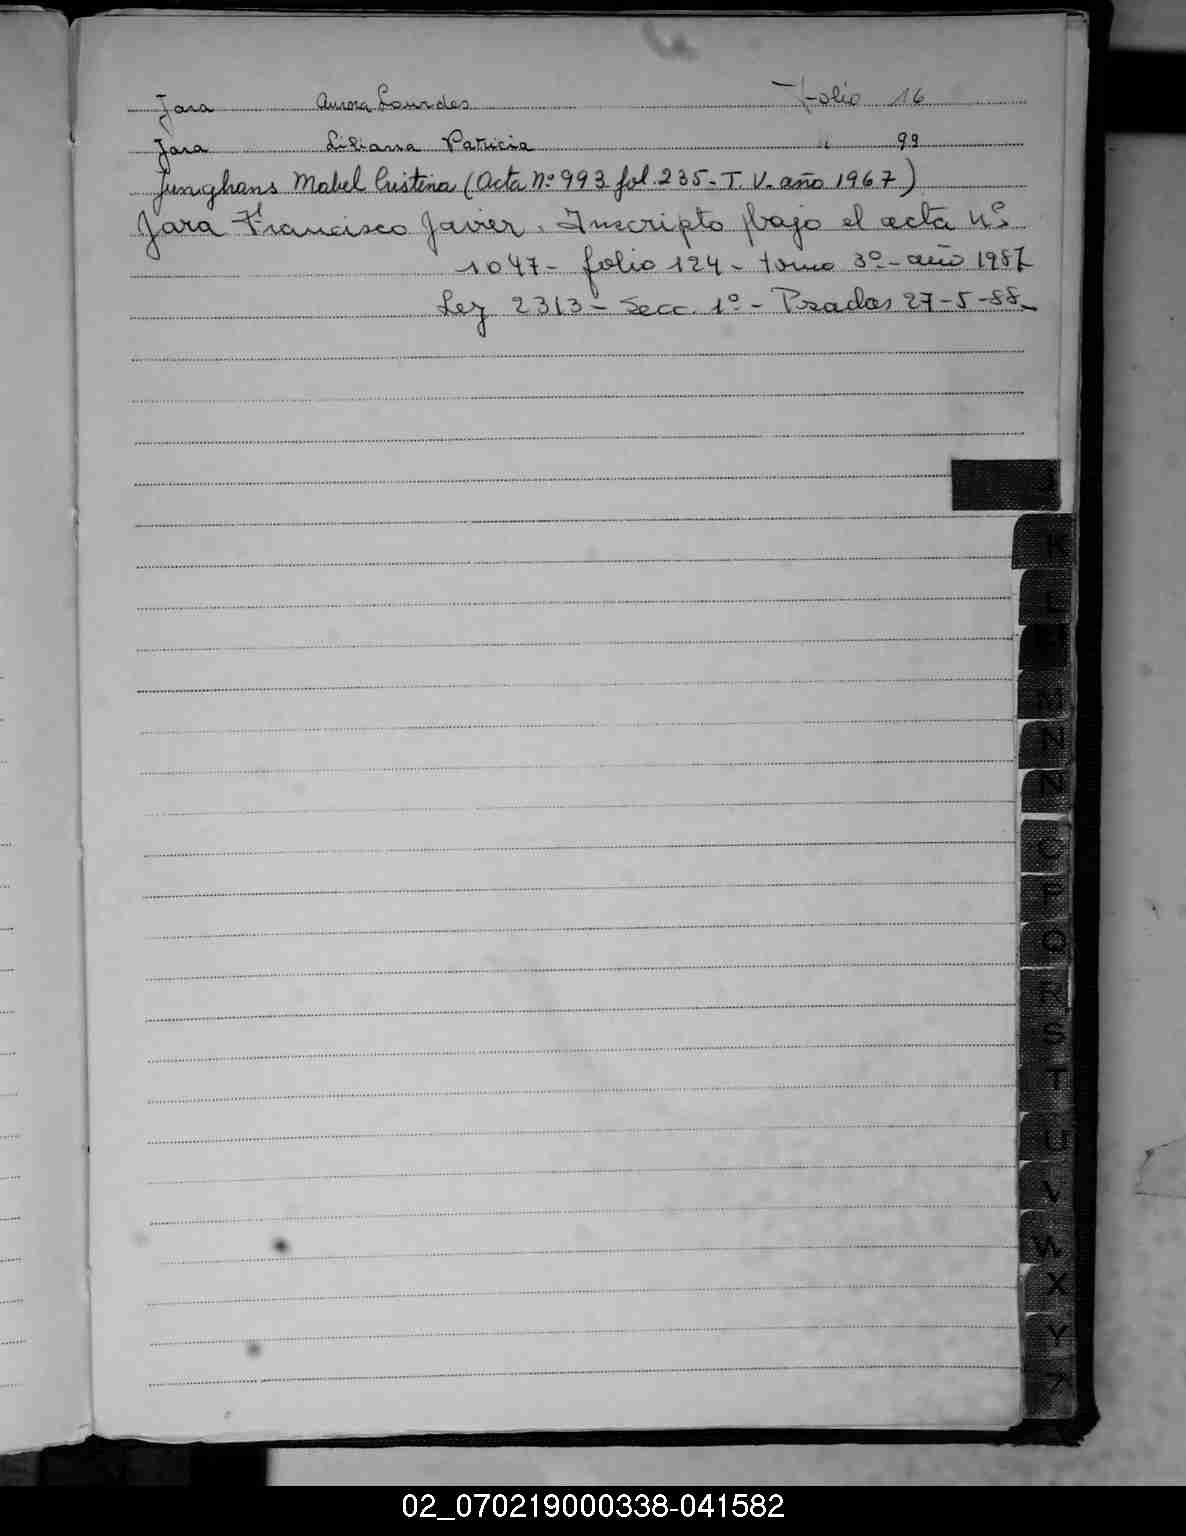 Jara Aurora Lourdes Folio 16
Jara Liliana Patricia " 99
Junghans Mabel Cristina (Acta Nº 993 fol. 235 - T. V. año 1967)
Jara Francisco Javier. Inscripto bajo el acta nº
1047 - folio 124 - tomo 3º - año 1987
Ley 2313 - Secc. 1º - Prados 27-5-88
K
L
M
N
N
O
P
Q
R
S
T
U
V
W
X
Y
Z
02_070219000338-041582